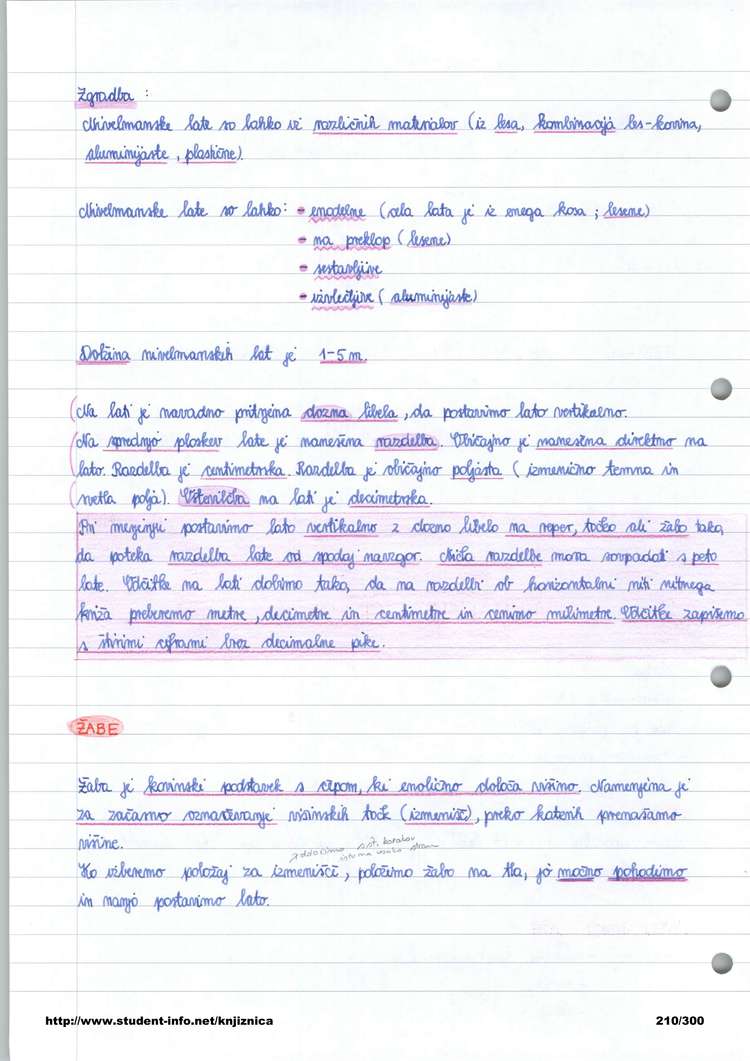 Zgradba :
Nivelmanske late so lahko iz različnih materialov (iz lesa, kombinacija les-kovina,
aluminijaste, plastične).
Nivelmanske late so lahko: - enodelne (cela lata je iz enega kosa ; lesene)
- na preklop (lesene)
- sestavljive
- izvlečljive (aluminijaste)
Dolžina nivelmanskih lat je 1-5 m.
Na lati je navadno pritrjena dozna libela, da postavimo lato vertikalno.
Na sprednjo ploskev late je nameščena razdelba. Običajno je nameščena direktno na
lato. Razdelba je centimetrska. Razdelba je običajno poljasta (izmenično temna in
svetla polja). Oštevilčba na lati je decimetrska.
Pri merjenju postavimo lato vertikalno z dozno libelo na reper, točko ali žabo tako,
da poteka razdelba late od spodaj navzgor. Ničla razdelbe mora sovpadati s peto
late. Odčitke na lati dobimo tako, da na razdelbi ob horizontalni niti nitnega
križa preberemo metre, decimetre in centimetre in cenimo milimetre. Odčitke zapišemo
s štirimi ciframi brez decimalne pike.
ŽABE
Žaba je kovinski podstavek s čepom, ki enolično določa višino. Namenjena je
za začasno označevanje višinskih točk (izmenišč), preko katerih prenašamo
višine.
št. korakov
Ko izberemo položaj za izmenišče, položimo žabo na tla, jo močno pohodimo
in nanjo postavimo lato.
http://www.student-info.net/knjiznica 210/300